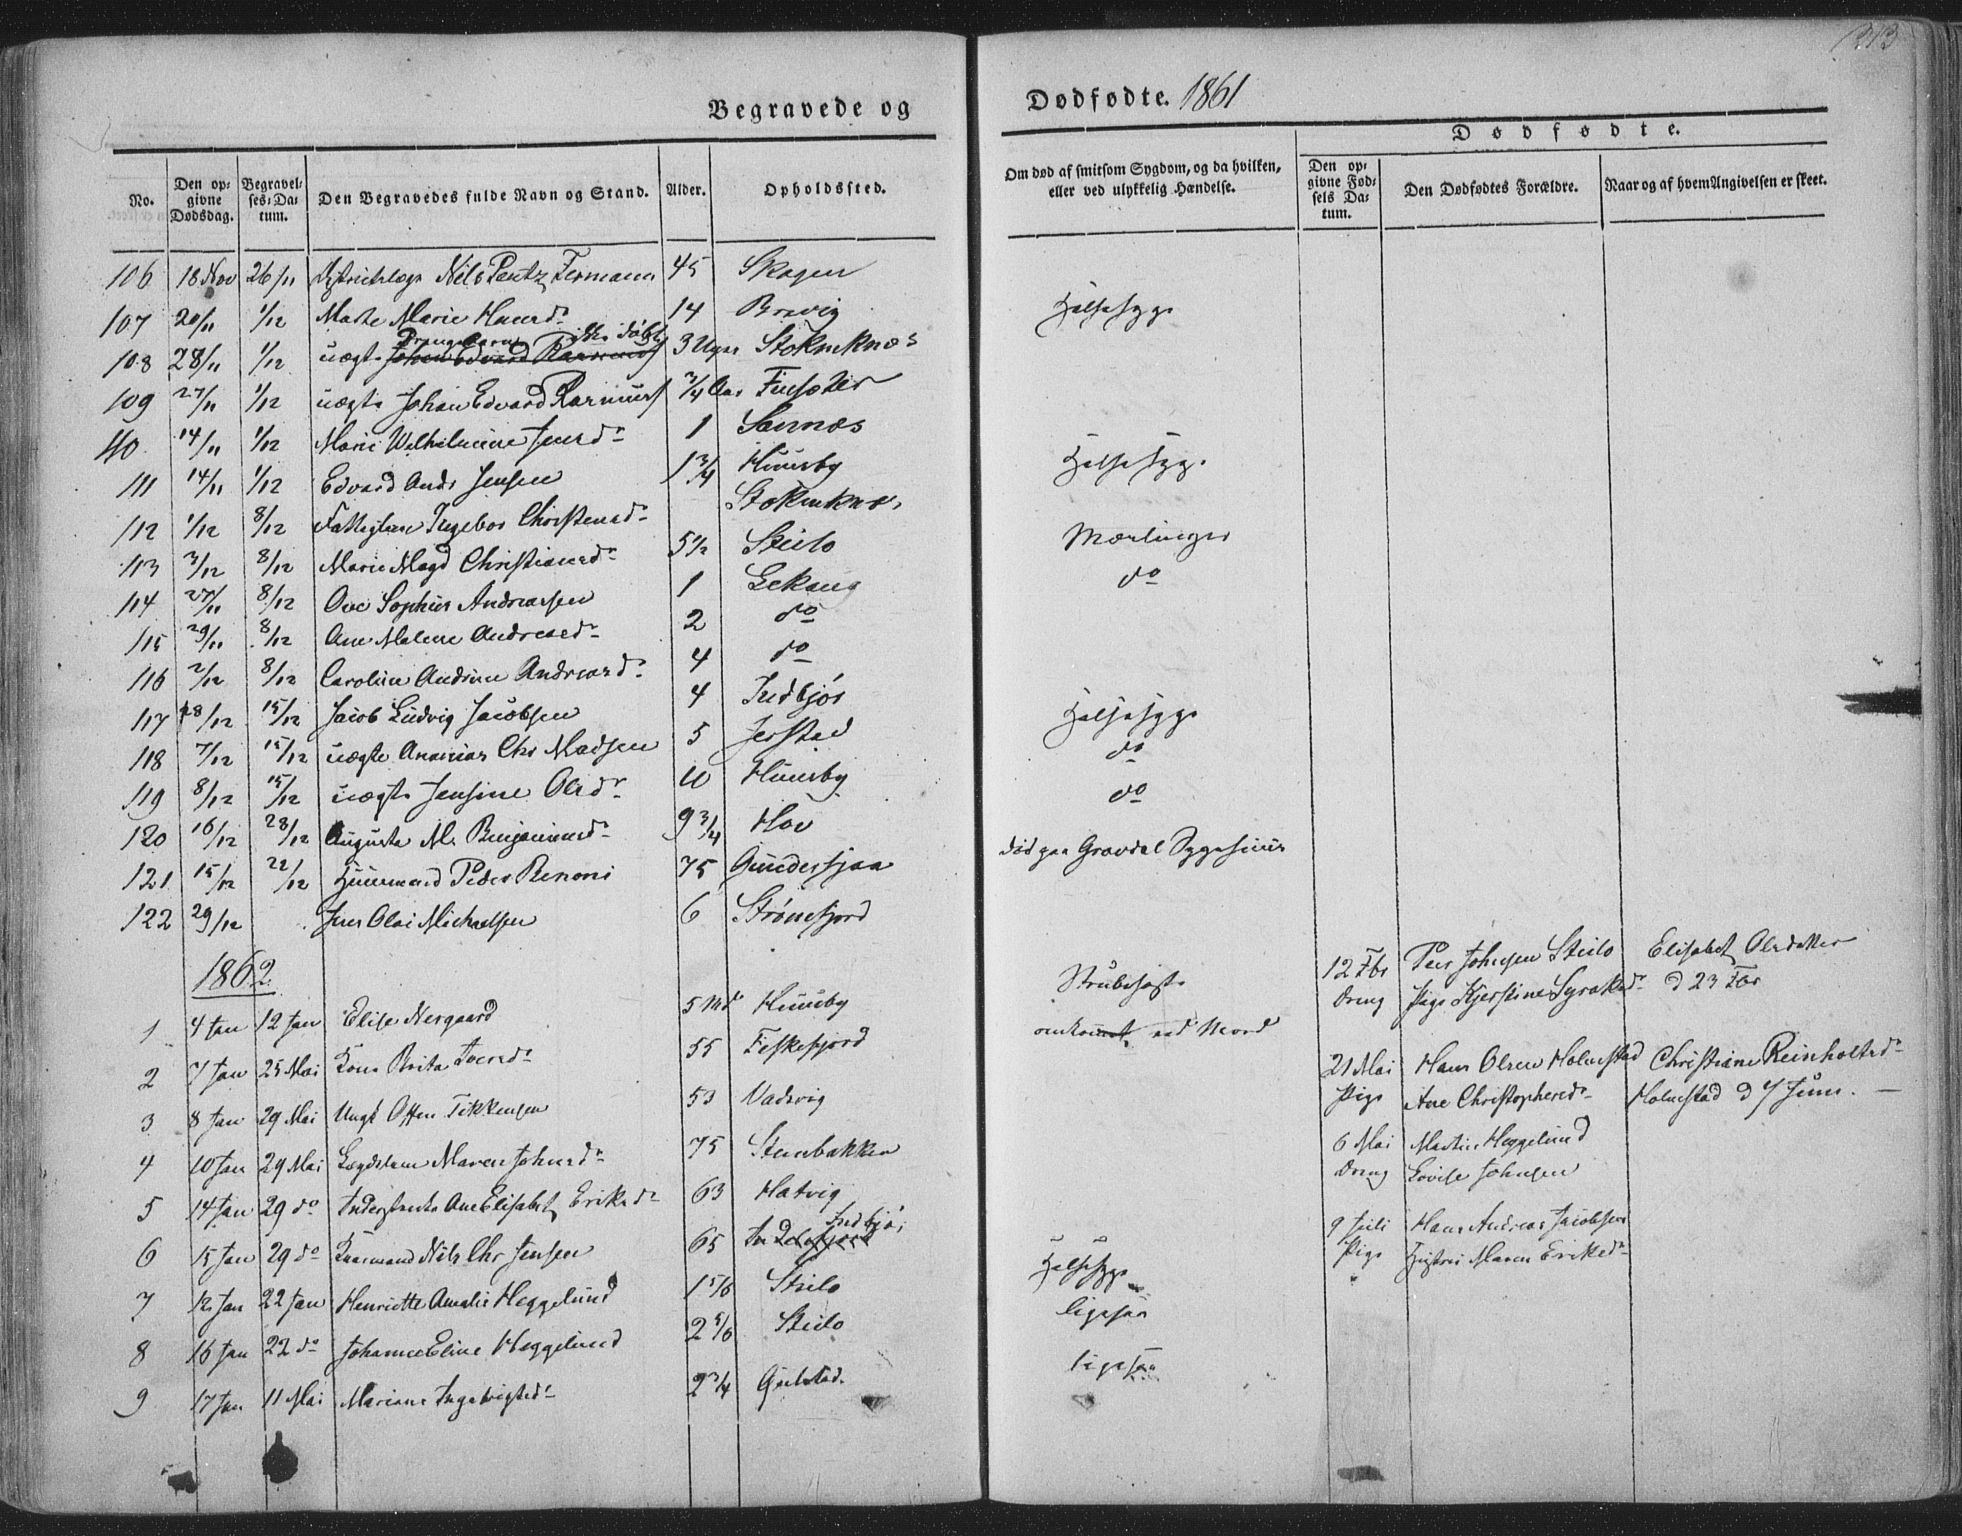 Begravede og
Dødfødte. 1861
Dødfødte.
No.
Den op-
givne
Dødsdag.
Begravel-
ses-Da-
tum.
Den Begravedes fulde Navn og Stand.
Alder.
Opholdssted.
Om død af smitsom Sygdom, og da hvilken,
eller ved ulykkelig Hændelse.
Den op-
givne Fød-
sels Da-
tum.
Den Dødfødtes Forældre.
Naar og af hvem Angivelsen er skeet.
106 18 Nov 26/11 Nils Pentz Fermann 45 Skagen
107 20/11 1/12 Marte Marie Hansd. 14 Brevig Halssyge
Drengebarn ikke døbt
108 28/11 1/12 uægte Johan Edvard Rasmuss 3 Uger Stokmknes
109 27/11 1/12 uægte Johan Edvard Rasmuss 3/4 Aar Finsæter
110 14/11 1/12 Marie Wilhelmine Jensd. 1 Sannæs
111 14/11 1/12 Edvard Andr Jensen 1 3/4 Huusby Halssyge
112 1/12 8/12 Fattiglem Ingebor Christensd. Stokmknes
113 3/12 8/12 Marie Magd Christiansd. 5 1/2 Steilo Mæslinger
114 27/11 8/12 Ove Sophus Andreassen 1 Eekang do
115 29/11 8/12 Ane Malene Andreasd. 2 do
116 2/12 8/12 Caroline Andrine Andreasd. 4 do
117 8/12 15/12 Jacob Ludvig Jacobsen 4 Indbjør Halssyge
118 7/12 15/12 uægte Ananias Chr Madsen 5 Jerstad do
119 8/12 15/12 uægte Jensine Olsd. 10 Huusby do
120 16/12 28/12 Augusta M. Benjaminsd. 9 3/4 Hov død paa Gravdal Sygehuus
121 15/12 22/12 Huusmand Peder Benoni 75 Gunderfjaa
122 29/12 Jens Olai Michaelsen 6 Strønefjord
1862
12 Fbr Peer Johnsen Steilo Elisabet Olsdatter
Dreng Pige Kjerstine Syraksd. d 23 Fbr
1 4 Jan 12 Jan Elise Nergaard 5 Md Huusby Strubehoste
2 7 Jan 25 Mai Kone Brita Iversd. 55 Fiskefjord omkommet ved Mord
21 Mai Hans Olsen Holmstad Christiane Reinholtsd.
Pige Ane Christophersd. Holmstad d 7 Juni.
3 8 Jan 29 Mai Ungk Offen Tikkensen 53 Vadsvig
4 10 Jan 29 Mai Lægdslem Maren Johnsd. 75 Steenbakken
6 Mai Martin Heggelund
Dreng Lovise Johnsen
5 14 Jan 29 do Inderstente Ane Elisabet Eriksd. 63 Hatvig
Indbjør
6 15 Jan 29 do Kaarmand Nils Chr Jensen 65
9 Juli Hans Andreas Jacobsen
Pige Hustru Maren Eriksd.
7 12 Jan 22 Jan Henriette Amalie Heggelund 1 5/6 Steilo Halssyge
8 16 Jan 22 do Johanne Eline Heggelund 2 5/6 Steilo ligesaa
9 17 Jan 11 Mai Mariane Ingebrigtsd. 2 3/4 Gulstad. ligesaa